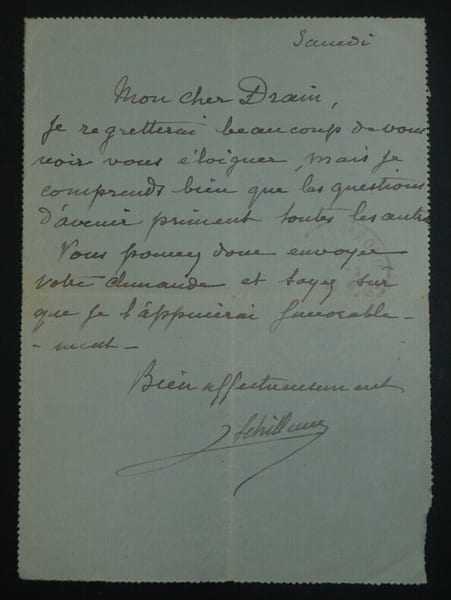 Samedi
Mon cher Drain,
Je regretterai beaucoup de vous
voir vous éloigner, mais je
comprends bien que les questions
d'avenir priment toutes les autres
Vous pouvez donc envoyer
votre demande et soyez sûr
que je l'appuierai favorable-
-ment-
Bien affectueusement